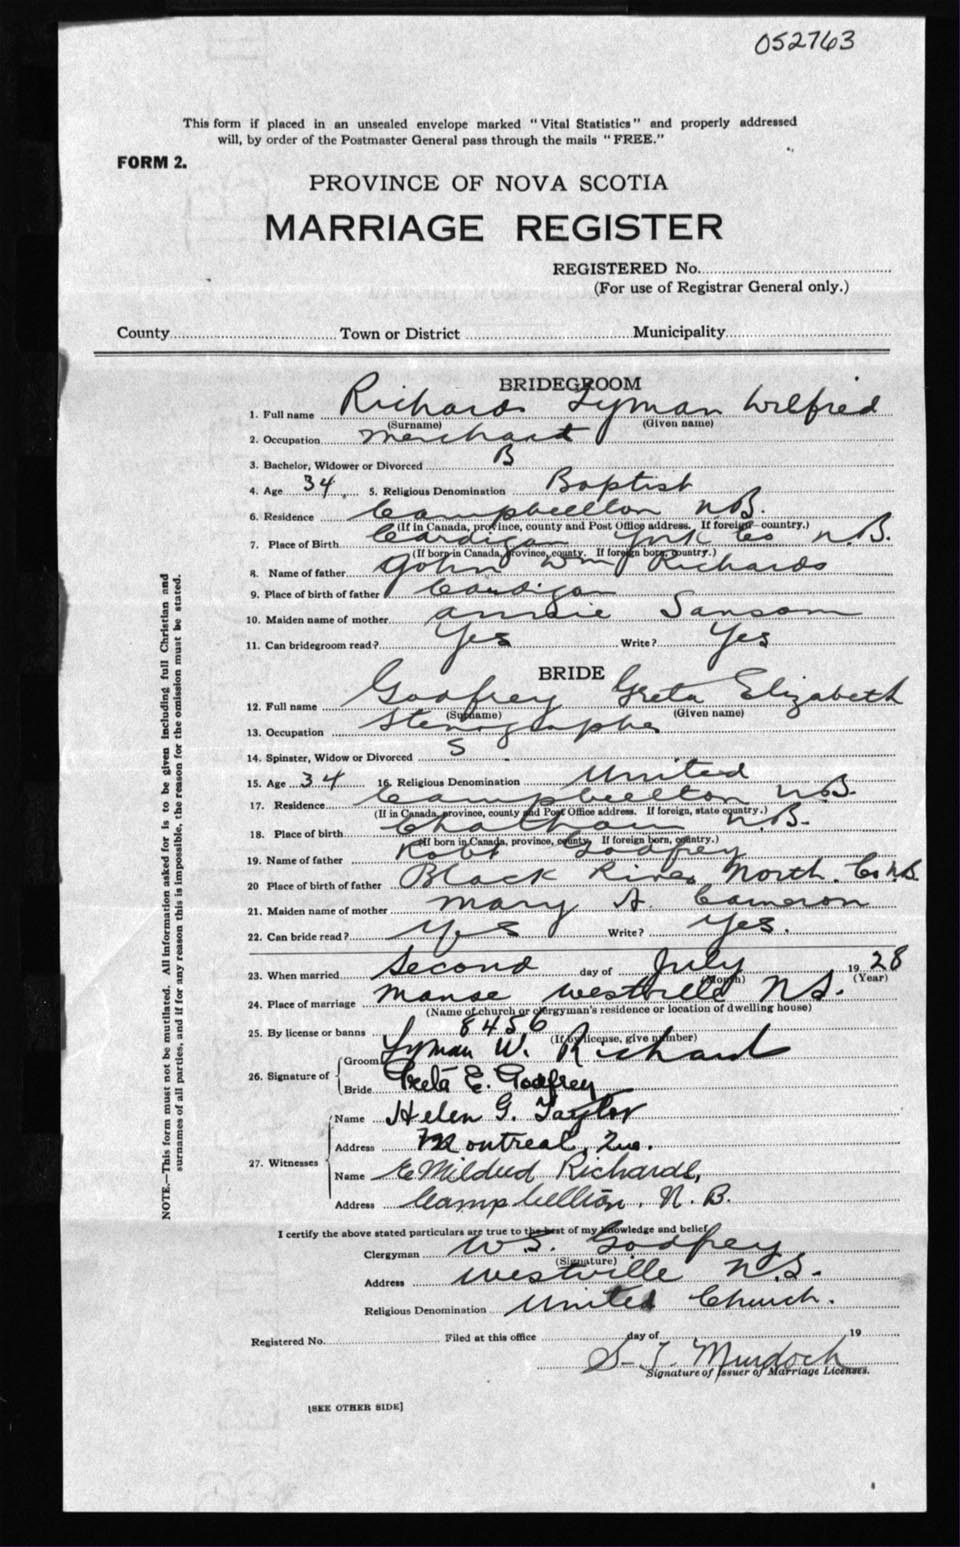 052763
This form if placed in an unsealed envelope marked "Vital Statistics" and properly addressed
will, by order of the Postmaster General pass through the mails "FREE."
FORM 2.
PROVINCE OF NOVA SCOTIA
MARRIAGE REGISTER
REGISTERED No.
(For use of Registrar General only.)
County Town or District Municipality
BRIDEGROOM
1. Full name Richards Lyman Wilfred
(Surname) (Given name)
2. Occupation Merchant
3. Bachelor, Widower or Divorced B
4. Age 34 5. Religious Denomination Baptist
6. Residence Campbellton N.B.
(If in Canada, province, county and Post Office address. If foreign country.)
7. Place of Birth Cardigan York Co N.B.
(If born in Canada, province, county. If foreign born, country.)
8. Name of father John Wm Richards
9. Place of birth of father Cardigan
10. Maiden name of mother Annie Sansom
11. Can bridegroom read? Yes Write? Yes
BRIDE
12. Full name Godfrey Greta Elizabeth
(Surname) (Given name)
13. Occupation Stenographer
14. Spinster, Widow or Divorced S
15. Age 34 16. Religious Denomination United
17. Residence Campbellton N.B.
(If in Canada, province, county and Post Office address. If foreign, state country.)
18. Place of birth Chatham N.B.
(If born in Canada, province, county. If foreign born, country.)
19. Name of father Robt Godfrey
20 Place of birth of father Black River North. Co N.B.
21. Maiden name of mother Mary A. Cameron
22. Can bride read? Yes Write? Yes.
23. When married Second day of July 1928
(Month) (Year)
24. Place of marriage Manse Westville N.S.
(Name of church or clergyman's residence or location of dwelling house)
25. By license or banns 8456
(If by license, give number)
26. Signature of
Groom Lyman W. Richards
Bride Greta E. Godfrey
27. Witnesses
Name Helen G. Taylor
Address Montreal, Que.
Name E Mildred Richards,
Address Campbellton. N. B.
I certify the above stated particulars are true to the best of my knowledge and belief.
Clergyman W S. Godfrey
(Signature)
Address Westville N.S.
Religious Denomination United Church.
Registered No. Filed at this office day of 19
S. T. Murdoch
Signature of Issuer of Marriage Licenses.
[SEE OTHER SIDE]
NOTE.—This form must not be mutilated. All information asked for is to be given including full Christian and
surnames of all parties, and if for any reason this is impossible, the reason for the omission must be stated.